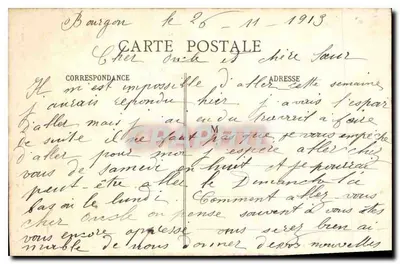 Bourgon le 26-11-1913
CARTE POSTALE
Cher oncle et chère sœur
CORRESPONDANCE ADRESSE
Il m'est impossible d'aller cette semaine
j'aurais répondu hier j'avais l'espoir
d'aller mais j'ai eu du travail à faire
de suite il ne faut pas que je vous empêche
d'aller pour moi j'espère aller chez
vous de samedi en huit et je pourrai
peut être aller le Dimanche
bas et le lundi. Comment allez vous
cher oncle on pense souvent à vous êtes
vous encore oppressé vous serez bien ai
mable de nous donner de vos nouvelles